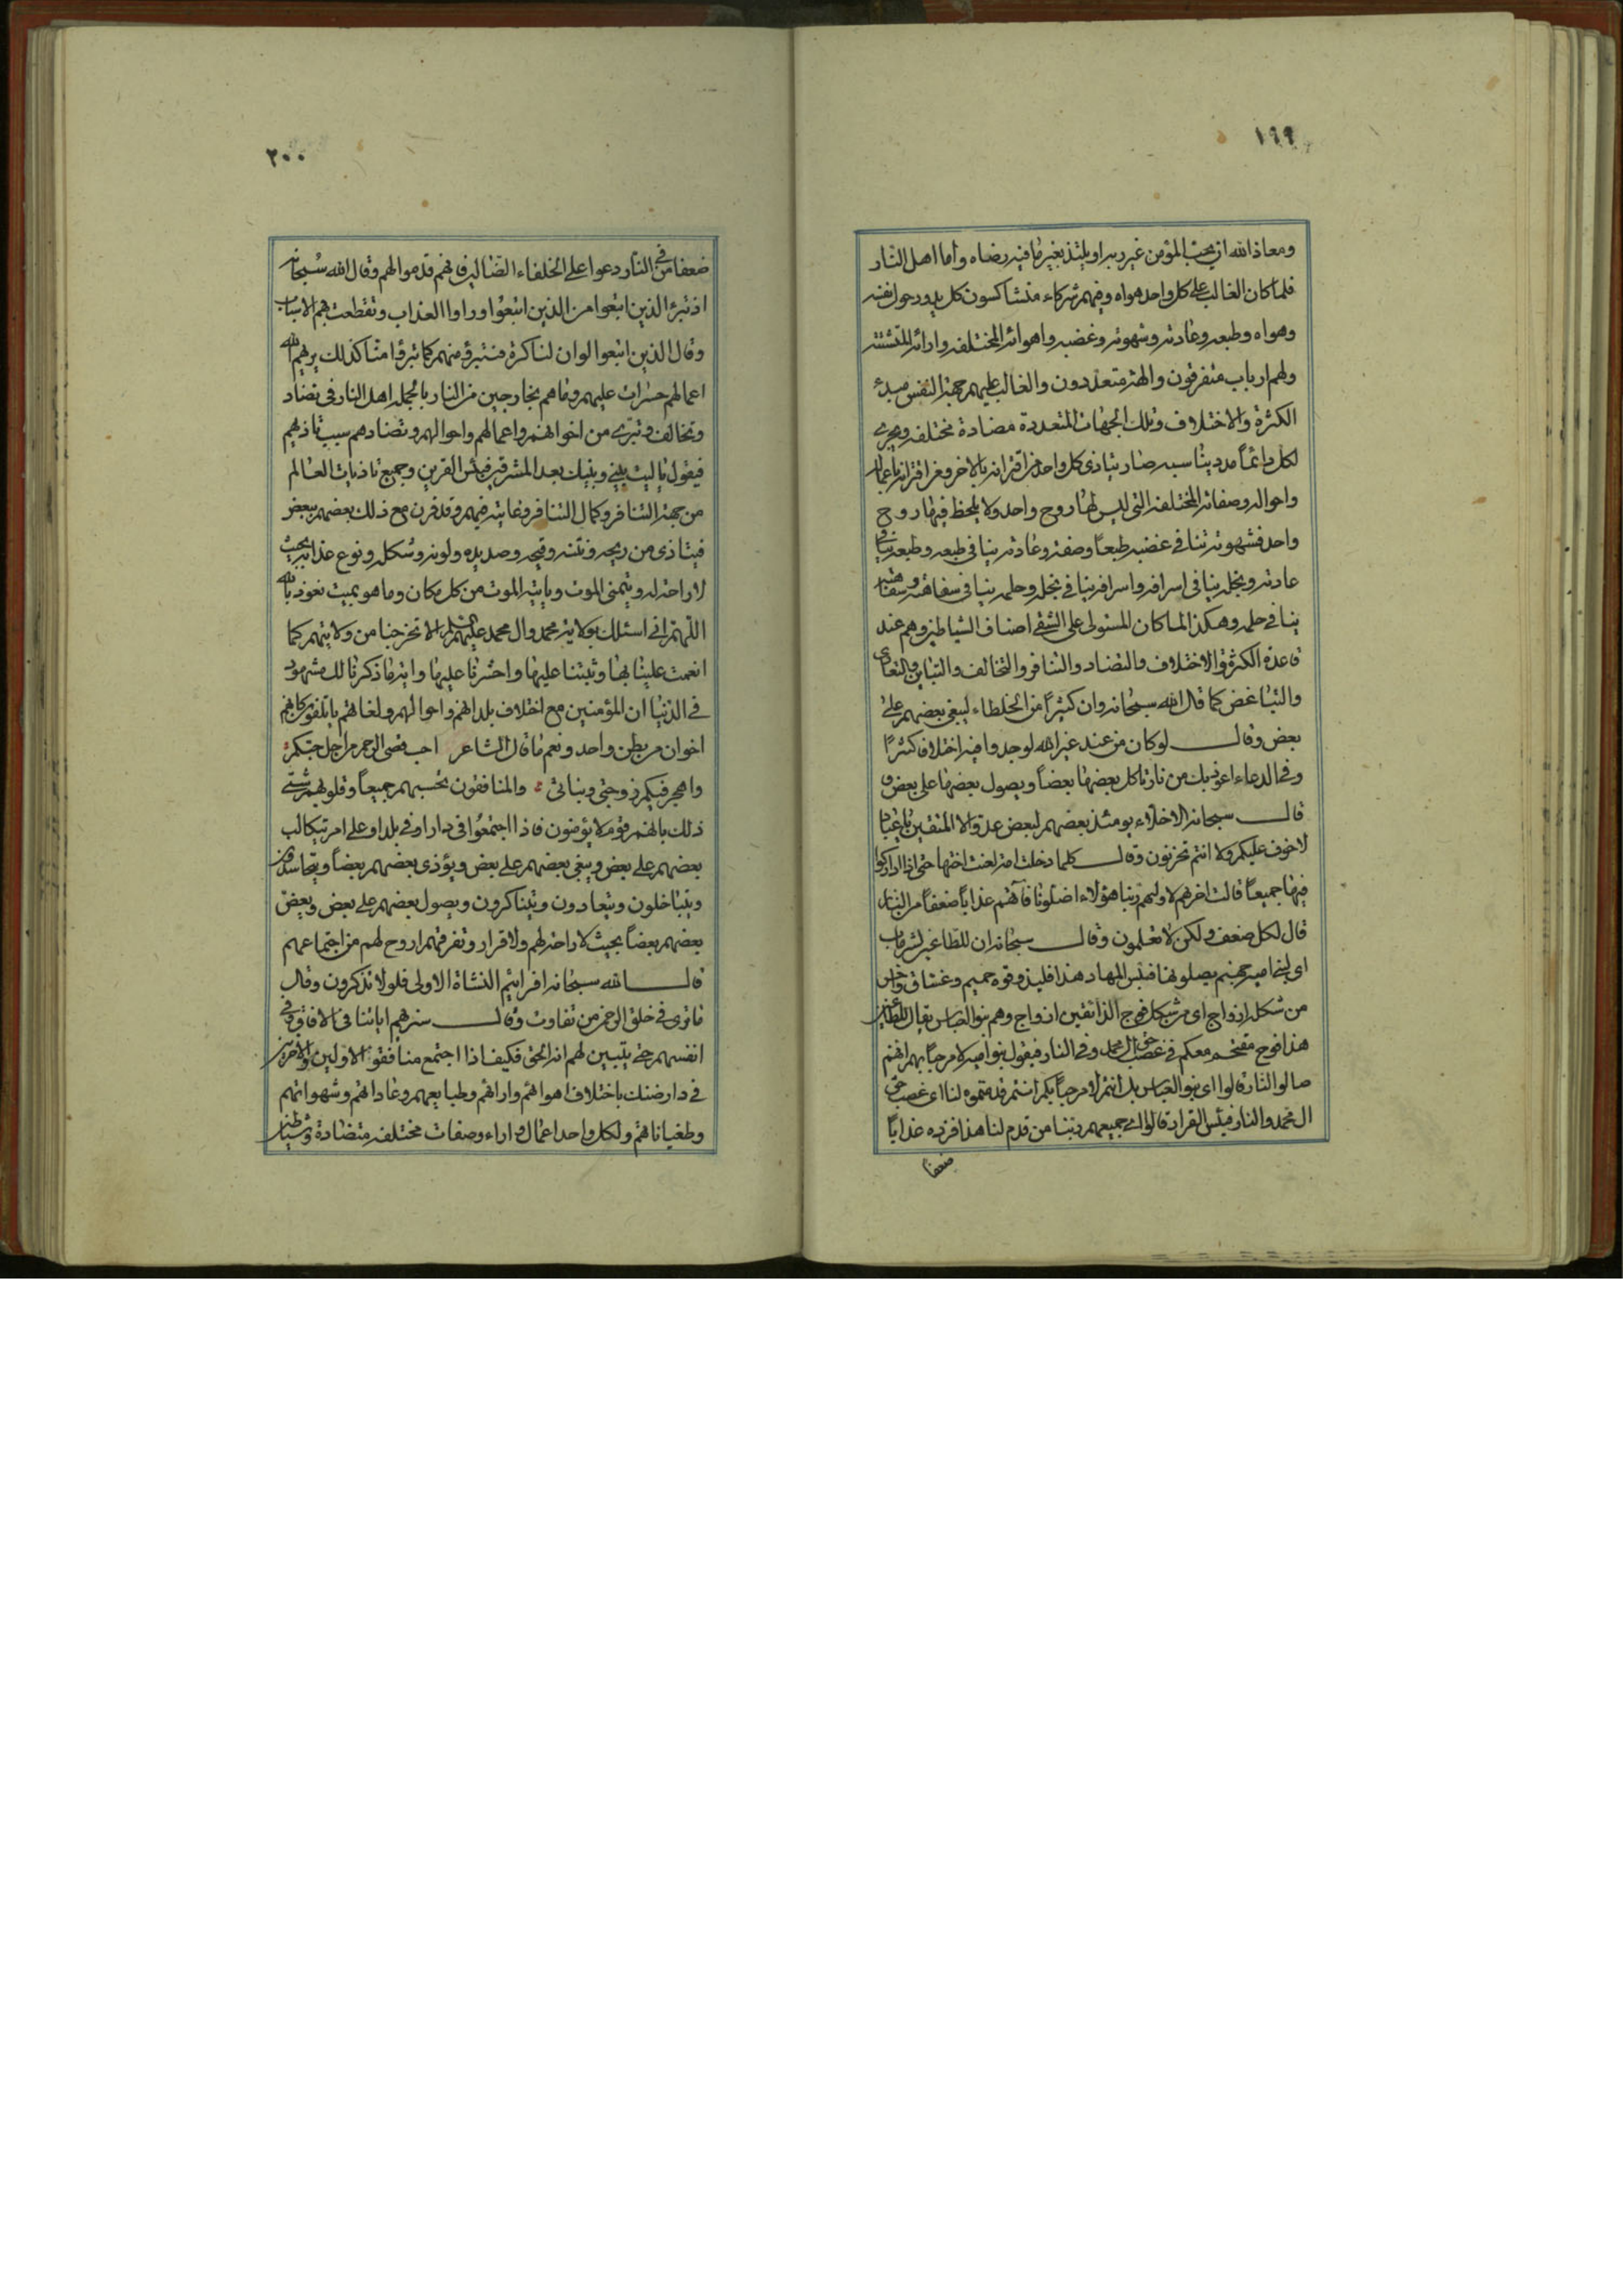 ١٩٩
ومعاذ الله ان يحب المؤمن غير ربه او يلتذ بغير ما فيه رضاه واما اهل النار
فلما كان الغالب على كل واحد هواه وفيهم شركاء متشاكسون كل يدور حول نفسه
وهواه وطبعه وعادته وشهوته وغضبه واهوائه المختلفة وارائه المتشتتة
ولهم ارباب متفرقون والهة متعددون والغالب عليهم جهة النفس مبدء
الكثرة والاختلاف وتلك الجهات المتعددة مضادة مختلفة ويجرى
لكل دائما مدد يناسبه صار يتاذى كل واحد من اقترانه بالاخر ومن اقترانه باعماله
واحواله وصفاته المختلفة التى ليس لها روح واحد ولا يلحظ فيها روح
واحد فشهوته تنافى غضبه طبعاً وصفة وعادته ينافى طبعه وطبعه ينافى
عادته وبخله ينافى اسرافه واسرافه ينافى بخله وحلمه ينافى سفاهته وسفاهته
ينافى حلمه وهكذا لما كان المستولى على الشقى اصناف الشياطين وهم عند
قاعدة الكثرة والاختلاف والتضاد والتنافر والتخالف والتباين والتعادى
والتباغض كما قال الله سبحانه وان كثيراً من الخلطاء ليبغى بعضهم على
بعض وقال لو كان من عند غير الله لوجدوا فيه اختلافا كثيراً
وفى الدعاء اعوذ بك من نار تاكل بعضها بعضاً ويصول بعضها على بعض و
قال سبحانه الاخلاء يومئذ بعضهم لبعض عدو الا المتقين يا عباد
لا خوف عليكم ولا انتم تحزنون وقال كلما دخلت امة لعنت اختها حتى اذا اداركوا
فيها جميعاً قالت اخريهم لاوليهم ربنا هؤلاء اضلونا فآتهم عذاباً ضعفاً من النار
قال لكل ضعف ولكن لا تعلمون وقال سبحانه ان للطاغين لشر ماب
اى بنى امية جهنم يصلونها فبئس المهاد هذا فليذوقوه حميم وغساق واخر
من شكله ازواج اى من شكل فوج الذائقين ازواج وهم بنو العباس يقال للطاغين
هذا فوج مقتحم معكم فى غصب حق ال محمد وفى النار فيقول بنو امية لا مرحباً بهم انهم
صالوا النار قالوا اى بنو العباس بل انتم لا مرحباً بكم انتم قدمتموه لنا اى غصب حق
ال محمد والنار فبئس القرار قالوا اى جميعهم ربنا من قدم لنا هذا فزده عذاباً
ضعفا
٢٠٠
ضعفا فى النار دعوا على الخلفاء الضالين فانهم قدموا لهم وقال الله سبحانه
اذ تبرء الذين اتبعوا من الذين اتبعوا وراوا العذاب وتقطعت بهم الاسباب
وقال الذين اتبعوا لو ان لنا كرة فنتبرؤ منهم كما تبرؤا منا كذلك يريهم الله
اعمالهم حسرات عليهم وما هم بخارجين من النار بالجملة اهل النار فى تضاد
وتخالف وتبرى من اخوانهم واعمالهم واحوالهم وتضادهم سبب تاذيهم
فيقول ياليت بينى وبينك بعد المشرقين فبئس القرين وجميع تاذيات العالم
من جهة التنافر وكمال التنافر وغايته فيهم وقد قرن مع ذلك بعضهم ببعض
فيتاذى من ريحه ونتنه وقيحه وصديده ولونه وشكله ونوع عذابه بحيث
لا راحة له ويتمنى الموت وياتيه الموت من كل مكان وما هو بميت نعوذ بالله
اللهم انى اسئلك بولاية محمد وال محمد عليهم السلم الا تخرجنا من ولايتهم كما
انعمت علينا بها وثبتنا عليها واحشرنا عليها واية ما ذكرنا لك مشهود
فى الدنيا ان المؤمنين مع اختلاف بلدانهم واحوالهم ولغاتهم ياتلفون كانهم
اخوان من بطن واحد ونعم ما قال الشاعر احب قصى الرحم من اجل حبكم
واهجر فيكم زوجتى وبناتى والمنافقون تحسبهم جميعاً وقلوبهم شتى
ذلك بانهم قوم لا يؤمنون فاذا اجتمعوا فى دار او فى بلد او على امر يتكالب
بعضهم على بعض ويبغى بعضهم على بعض ويؤذى بعضهم بعضاً ويتحاسدون
ويتباخلون ويتعادون ويتناكرون ويصول بعضهم على بعض ويعض
بعضهم بعضاً بحيث لا راحة لهم ولا قرار وتفرقهم اروح لهم من اجتماعهم
قال الله سبحانه افرايتم النشاة الاولى فلولا تذكرون وقال
ما ترى فى خلق الرحمن من تفاوت وقال سنريهم اياتنا فى الافاق وفى
انفسهم حتى يتبين لهم انه الحق فكيف اذا اجتمع منافقوا الاولين والاخرين
فى دار ضنك باختلاف اهوائهم وارائهم وطبايعهم وعاداتهم وشهواتهم
وطغياناتهم ولكل واحد اعمال واراء وصفات مختلفة متضادة وشياطين